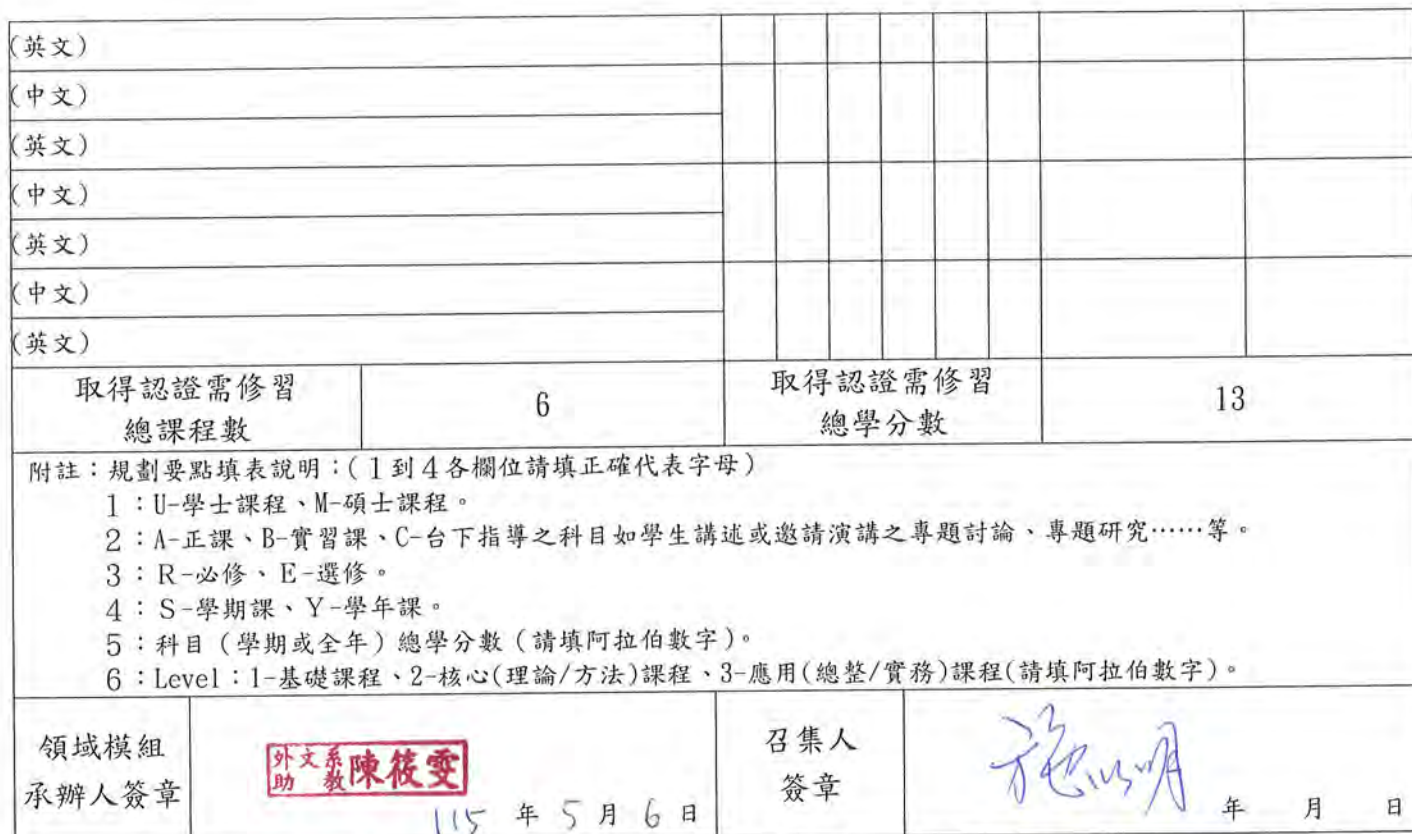 (英文)
(中文)
(英文)
(中文)
(英文)
(中文)
(英文)
取得認證需修習
總課程數
6
取得認證需修習
總學分數
13
附註：規劃要點填表說明：(1到4各欄位請填正確代表字母)
1：U-學士課程、M-碩士課程。
2：A-正課、B-實習課、C-台下指導之科目如學生講述或邀請演講之專題討論、專題研究……等。
3：R-必修、E-選修。
4：S-學期課、Y-學年課。
5：科目(學期或全年)總學分數(請填阿拉伯數字)。
6：Level：1-基礎課程、2-核心(理論/方法)課程、3-應用(總整/實務)課程(請填阿拉伯數字)。
領域模組
承辦人簽章
外文系
助教
陳筱雯
115 年 5 月 6 日
召集人
簽章
年 月 日